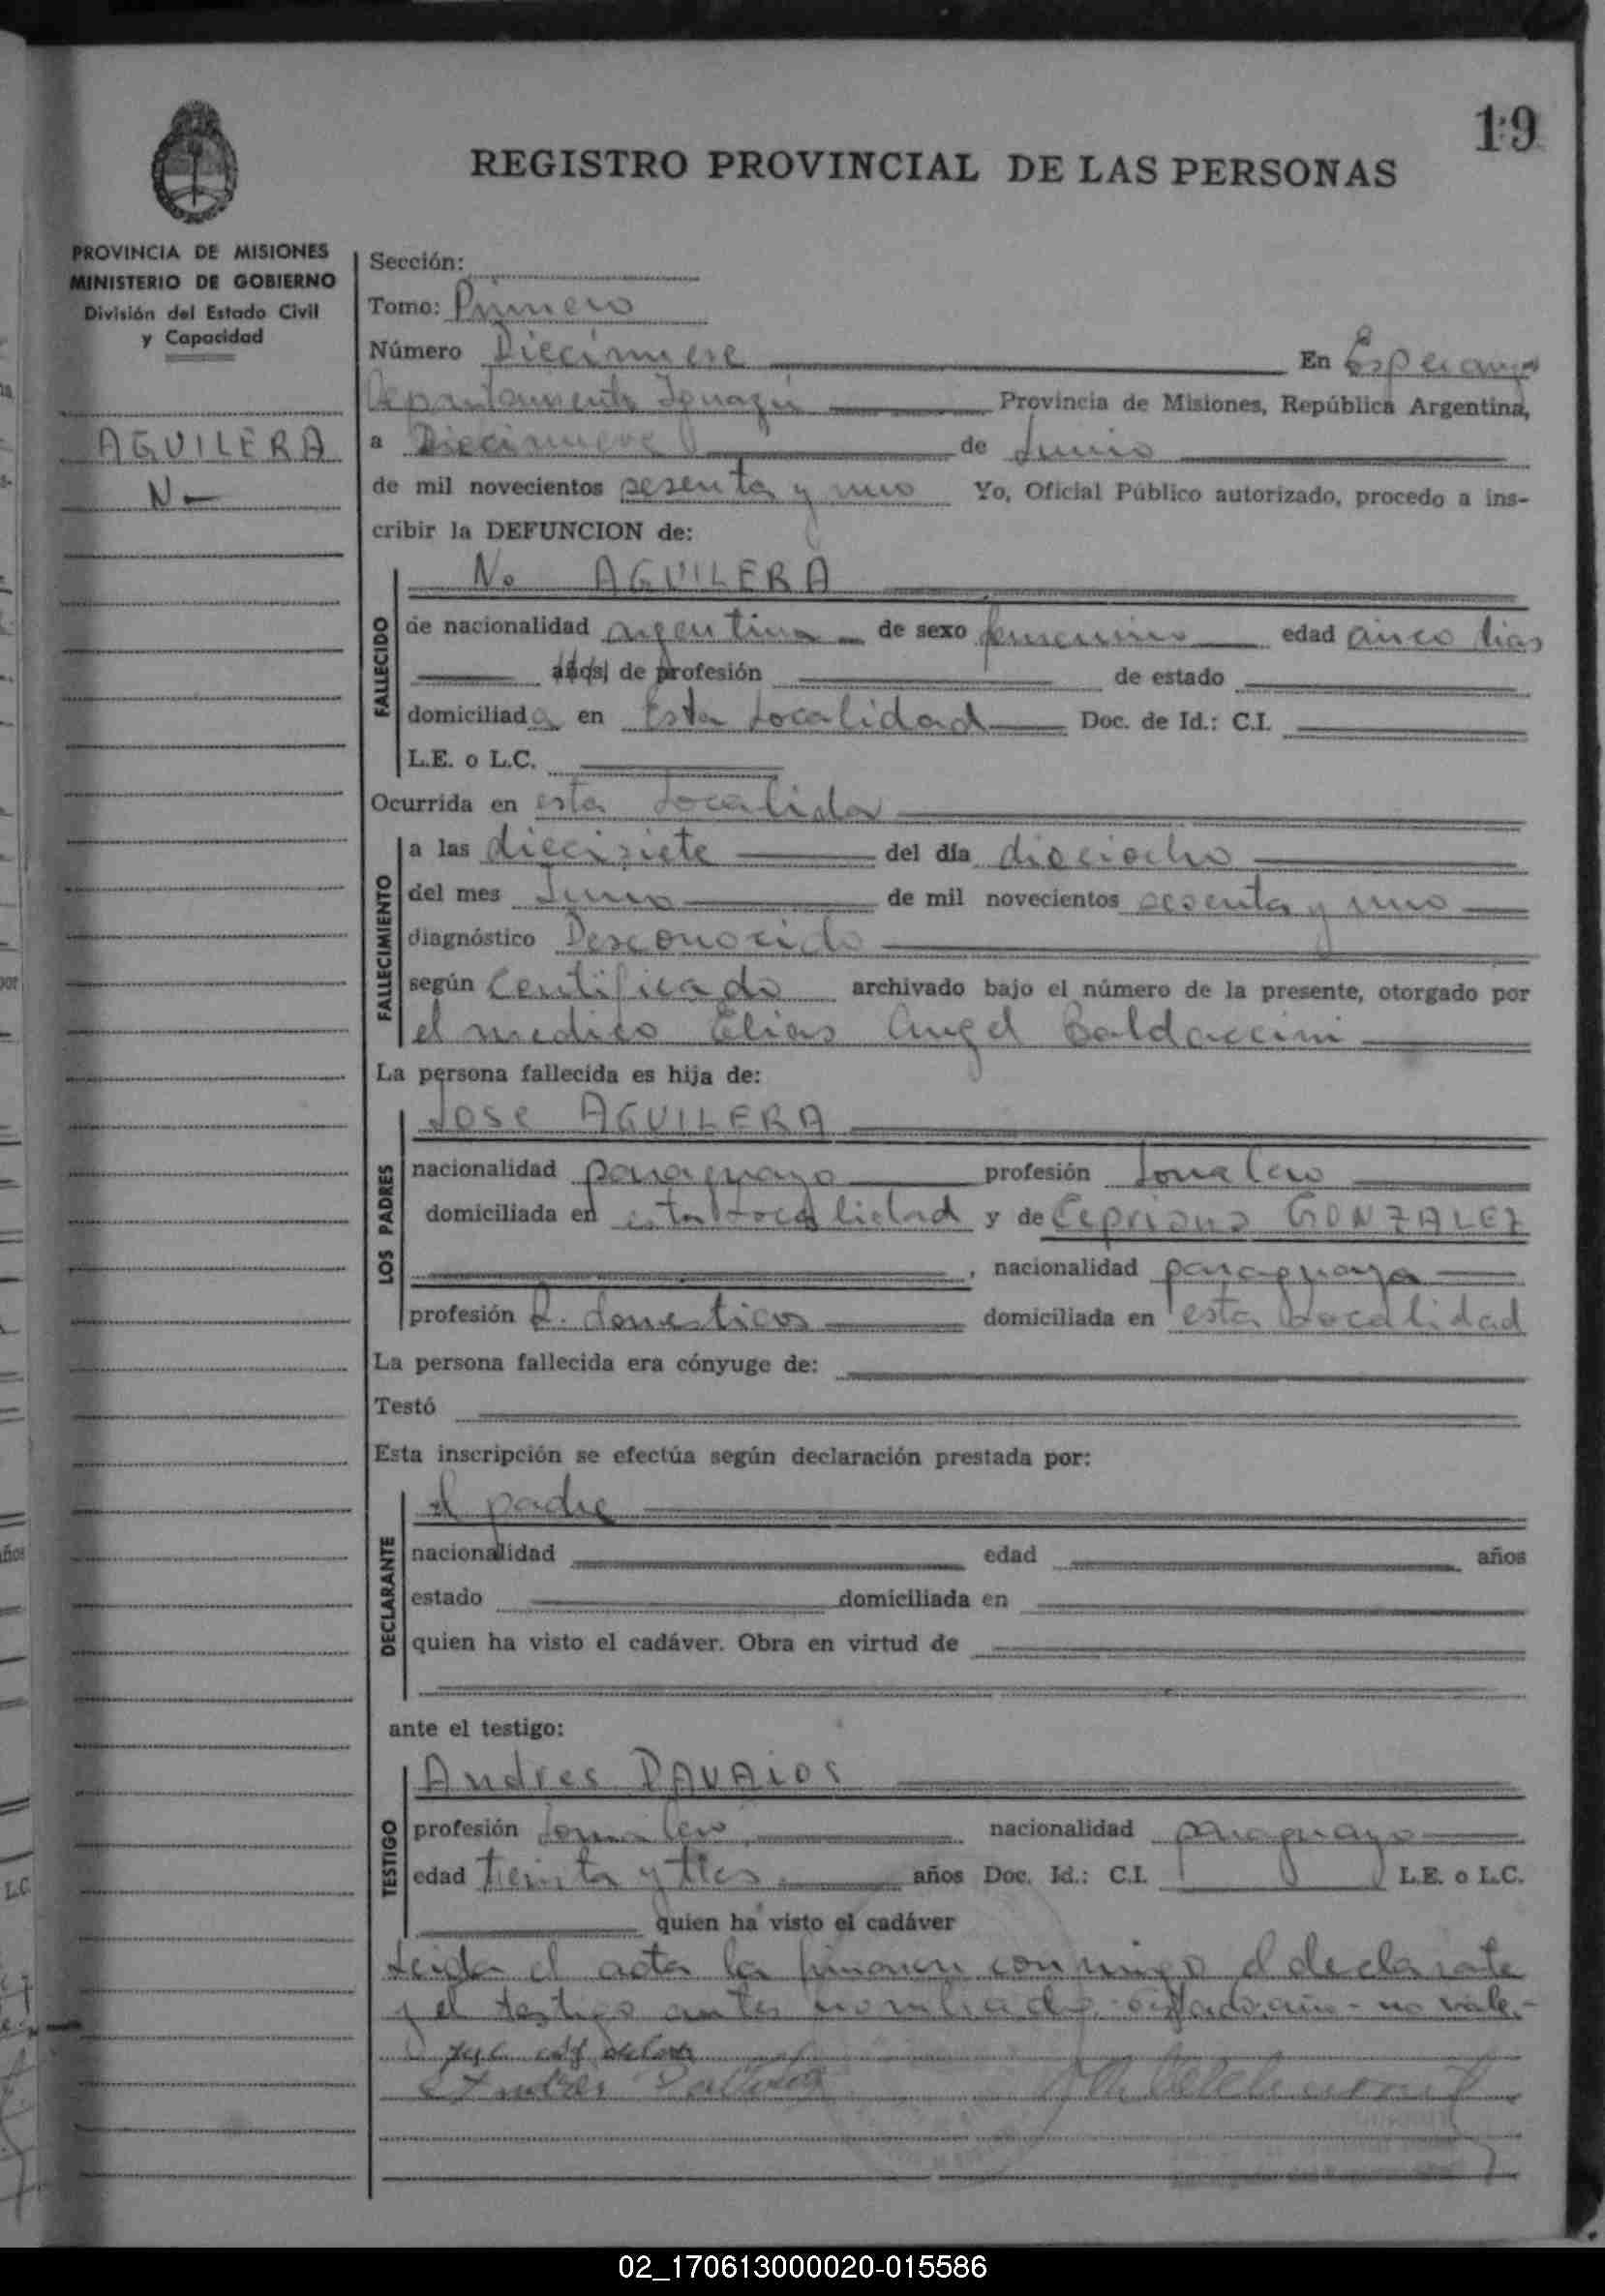 19
REGISTRO PROVINCIAL DE LAS PERSONAS
PROVINCIA DE MISIONES
MINISTERIO DE GOBIERNO
División del Estado Civil
y Capacidad
AGUILERA
N.
Sección:
Tomo: Primero
Número Diecinueve En Esperanza
Departamento Iguazú Provincia de Misiones, República Argentina,
a Diecinueve de Junio
de mil novecientos sesenta y uno Yo, Oficial Público autorizado, procedo a ins-
cribir la DEFUNCION de:
FALLECIDO
N. AGUILERA
de nacionalidad argentina de sexo femenino edad cinco dias
años, de profesión de estado
domiciliada en Esta Localidad Doc. de Id.: C.I.
L.E. o L.C.
Ocurrida en esta Localida
FALLECIMIENTO
a las diecisiete del día dieciocho
del mes Junio de mil novecientos sesenta y uno
diagnóstico Desconocido
según Certificado archivado bajo el número de la presente, otorgado por
el medico Elias Angel Baldaccini
La persona fallecida es hija de:
LOS PADRES
Jose AGUILERA
nacionalidad paraguayo profesión Jornalero
domiciliada en esta Localidad y de Cepriana GONZALEZ
, nacionalidad paraguaya
profesión Q. domesticos domiciliada en esta Localidad
La persona fallecida era cónyuge de:
Testó
Esta inscripción se efectúa según declaración prestada por:
DECLARANTE
el padre
nacionalidad edad años
estado domiciliada en
quien ha visto el cadáver. Obra en virtud de
ante el testigo:
TESTIGO
Andres DAVALOS
profesión Jornalero nacionalidad paraguayo
edad treinta y tres años Doc. Id.: C.I. L.E. o L.C.
quien ha visto el cadáver
Leida el acta la firman conmigo el declarante
y el testigo antes nombrado - no vale.-
Andres
02_170613000020-015586